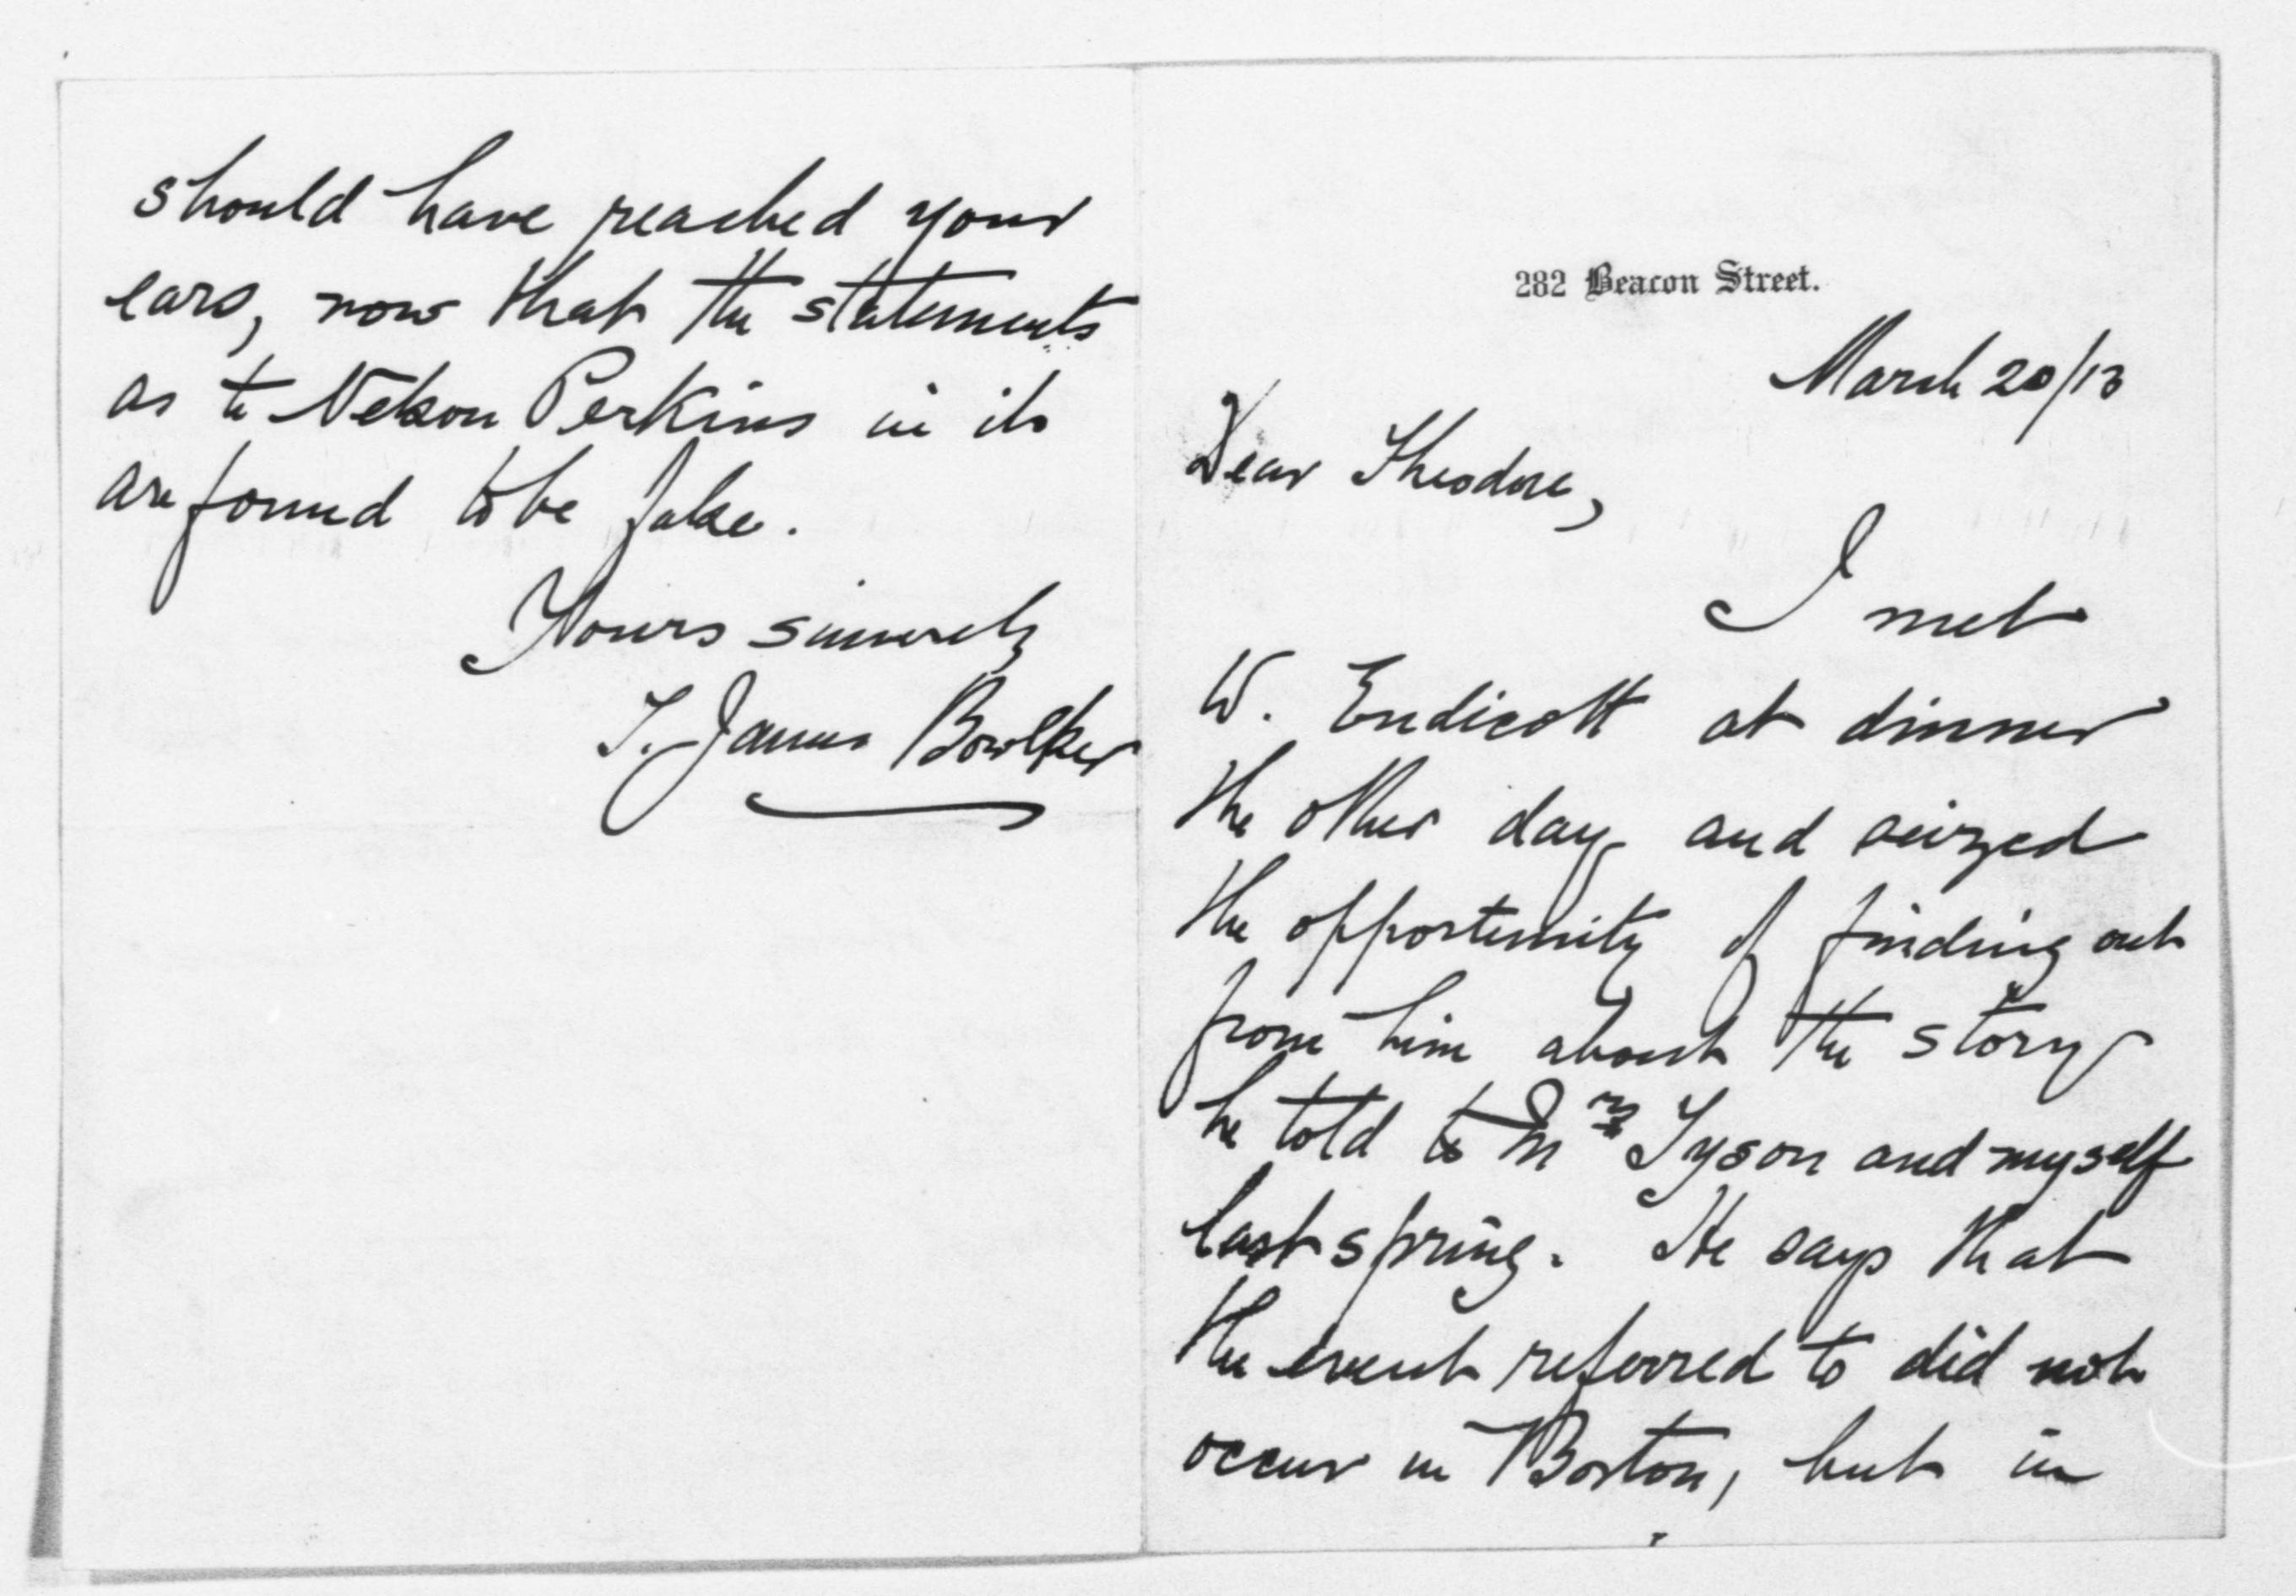 282 Beacon Street.
March 20/13
Dear Theodore,
I met
W. Endicott at dinner
the other day and seized
the opportunity of finding out
from him about the story
he told to Mrs Tyson and myself
last spring. He says that
the event referred to did not
occur in Boston, but in
should have reached your
ears, now that the statements
as to Nelson Perkins in it
are found to be false.
Yours sincerely
T. James Bowlker